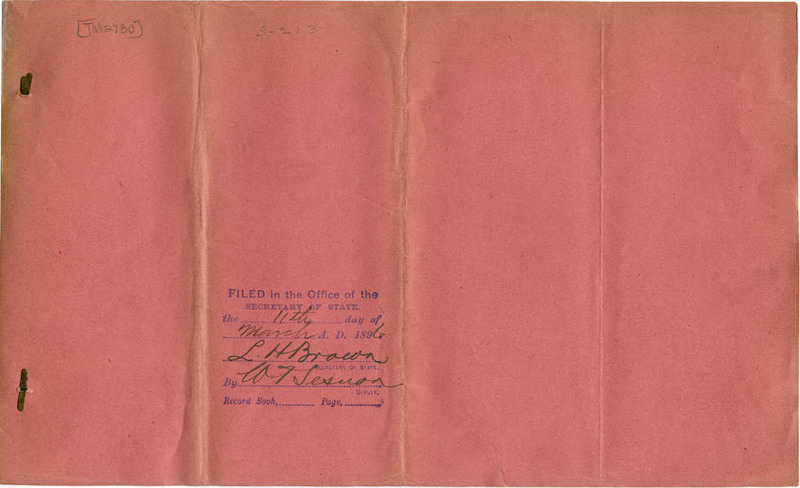 [TM2730]
3-213
FILED in the Office of the
SECRETARY OF STATE.
the 11th day of
March A. D. 1896
L. H Brown
SECRETARY OF STATE.
By W. T Sesnon
DEPUTY.
Record Book, Page,